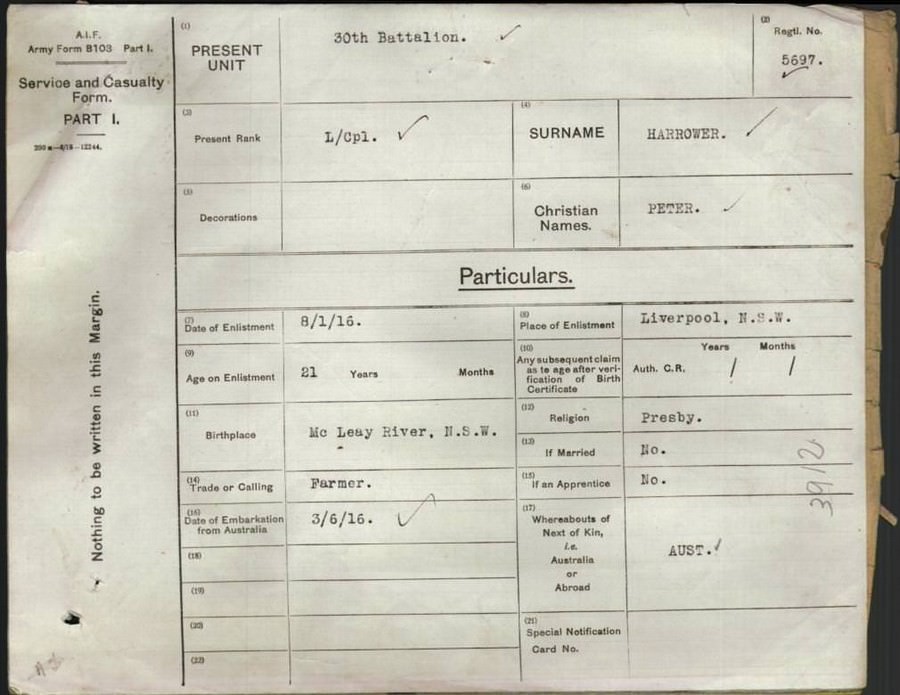 A.I.F.
Army Form B103 Part I.
Service and Casualty
Form.
PART I.
Nothing to be written in this Margin.
(1)
PRESENT
UNIT
30th Battalion.
(2)
Regtl. No.
5697.
(3)
Present Rank
L/Cpl.
(4)
SURNAME
HARROWER.
(5)
Decorations
(6)
Christian
Names.
PETER.
Particulars.
(7)
Date of Enlistment
8/1/16.
(8)
Place of Enlistment
Liverpool, N.S.W.
(9)
Age on Enlistment
21 Years Months
(10)
Any subsequent claim
as to age after veri-
fication of Birth
Certificate
Years Months
Auth. C.R. / /
(11)
Birthplace
Mc Leay River, N.S.W.
(12)
Religion
Presby.
(13)
If Married
No.
(14)
Trade or Calling
Farmer.
(15)
If an Apprentice
No.
3912
(16)
Date of Embarkation
from Australia
3/6/16.
(17)
Whereabouts of
Next of Kin,
i.e.
Australia
or
Abroad
AUST.
(18)
(19)
(20)
(21)
Special Notification
Card No.
(22)